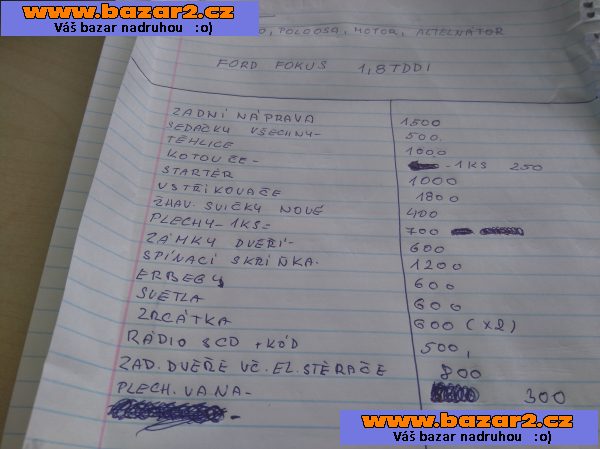 www.bazar2.cz
Váš bazar nadruhou :o)
, POLOOSA, MOTOR, ALTELNÁTOR
FORD FOKUS 1,8TDDI
ZADNÍ NÁPRAVA 1500
SEDAČKY VŠECHNY- 500.
TĚHLICE 1000
KOTOUČE- -1KS 250
STARTÉR 1000
VSTŘIKOVAČE 1800
ŽHAV. SVÍČKY NOVÉ 400
PLECHY-1KS= 700
ZÁMKY DVEŘÍ- 600
SPÍNACÍ SKŘÍŇKA. 1200
ERBEGY 600
SVĚTLA 600
ZRCÁTKA 600 (X2)
RÁDIO SCD +KÓD 500,
ZAD. DVEŘE VČ. EL. STĚRAČE 800
PLECH. VANA- 300
www.bazar2.cz
Váš bazar nadruhou :o)